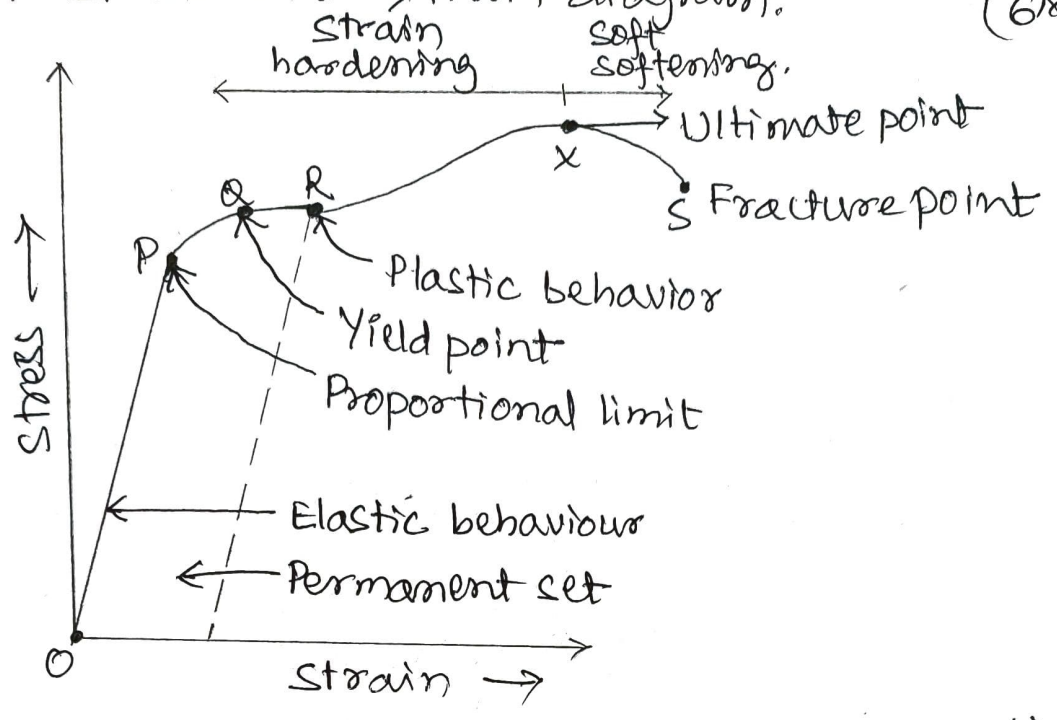 diagram.
(68
strain
hardening
soft
softening.
Ultimate point
X
Q
R
S Fracture point
P
Plastic behavior
Yield point
Proportional limit
Stress
Elastic behaviour
Permanent set
O
Strain